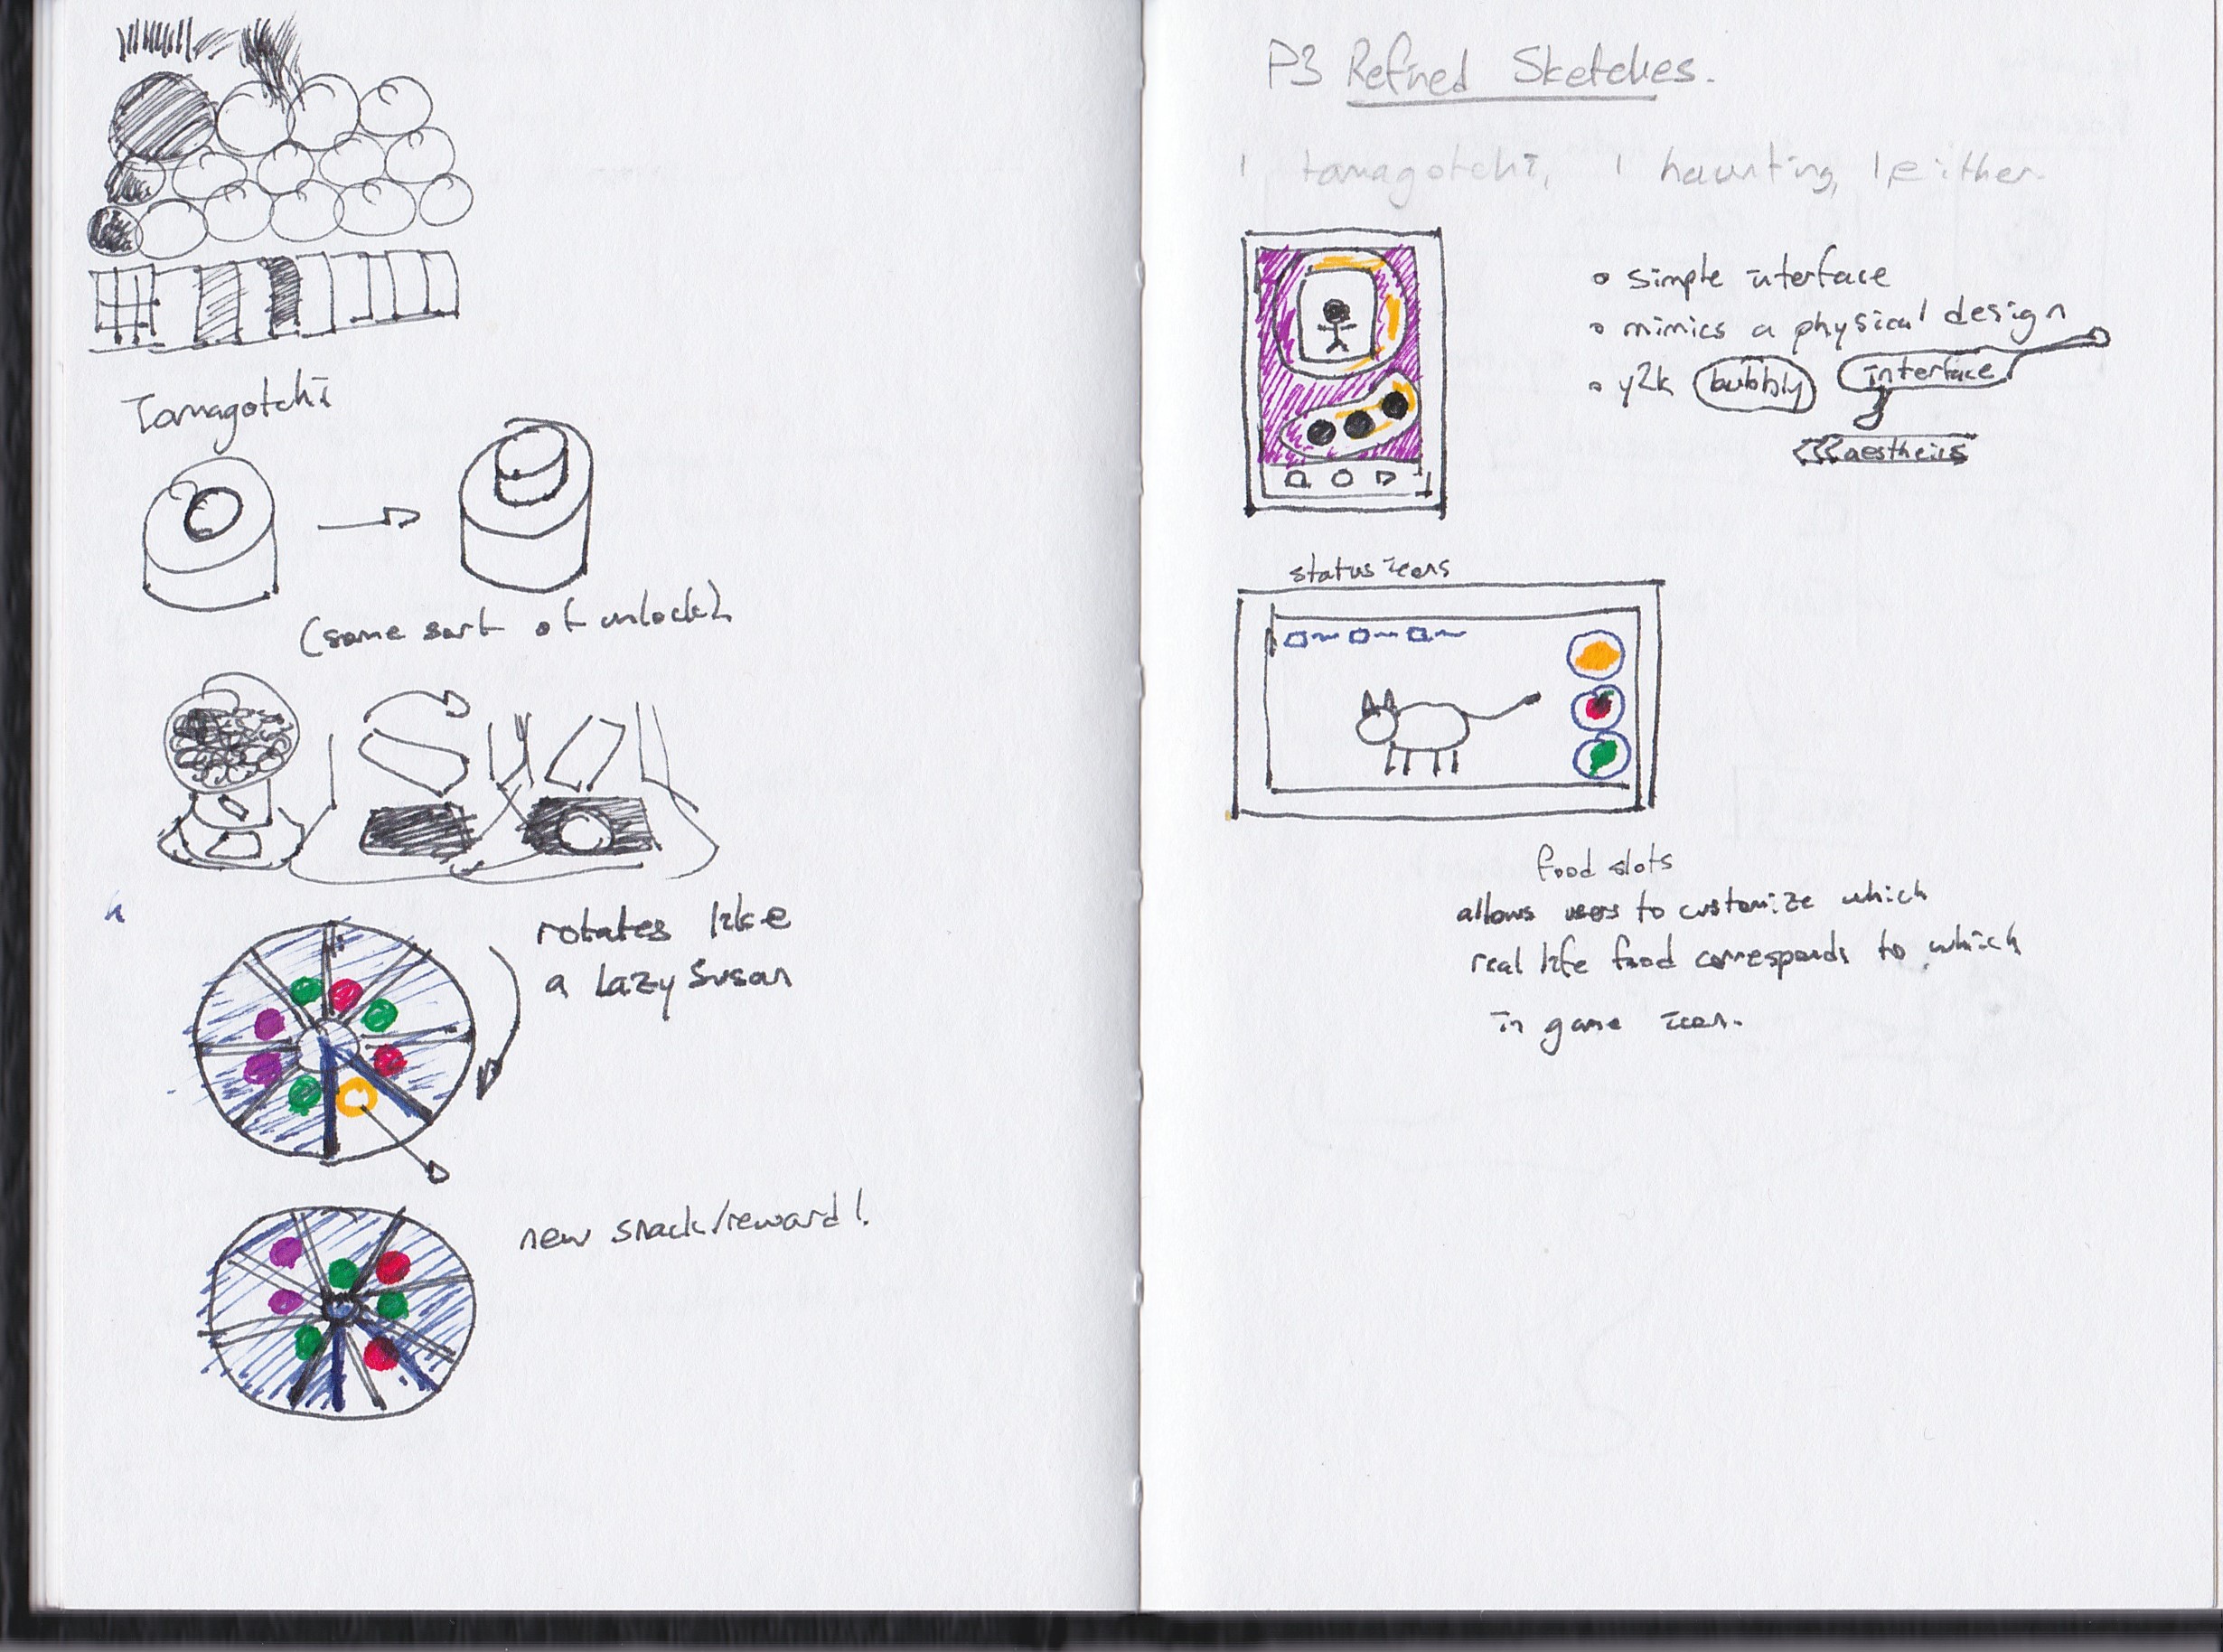 Tamagotchi
(some sort of unlock)
rotates like
a Lazy Susan
new snack/reward!
P3 Refined Sketches.
1 tamagotchi, 1 haunting, 1 either.
• simple interface
• mimics a physical design
• y2k bubbly interface
aesthetics
status icons
food slots
allows users to customize which
real life food corresponds to which
in game icon.